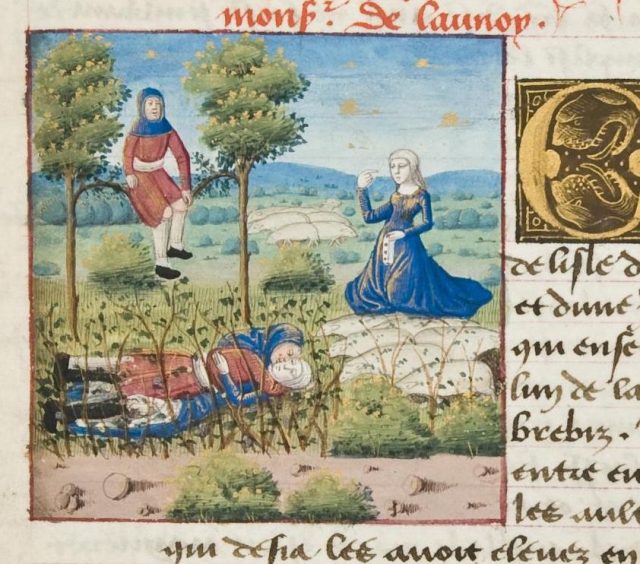 monsr. de launoy.
E
de lisle d
et dune
qui ense
luy de la
brebiz.
entre eu
les aul
qui desia les auoit eleuez en